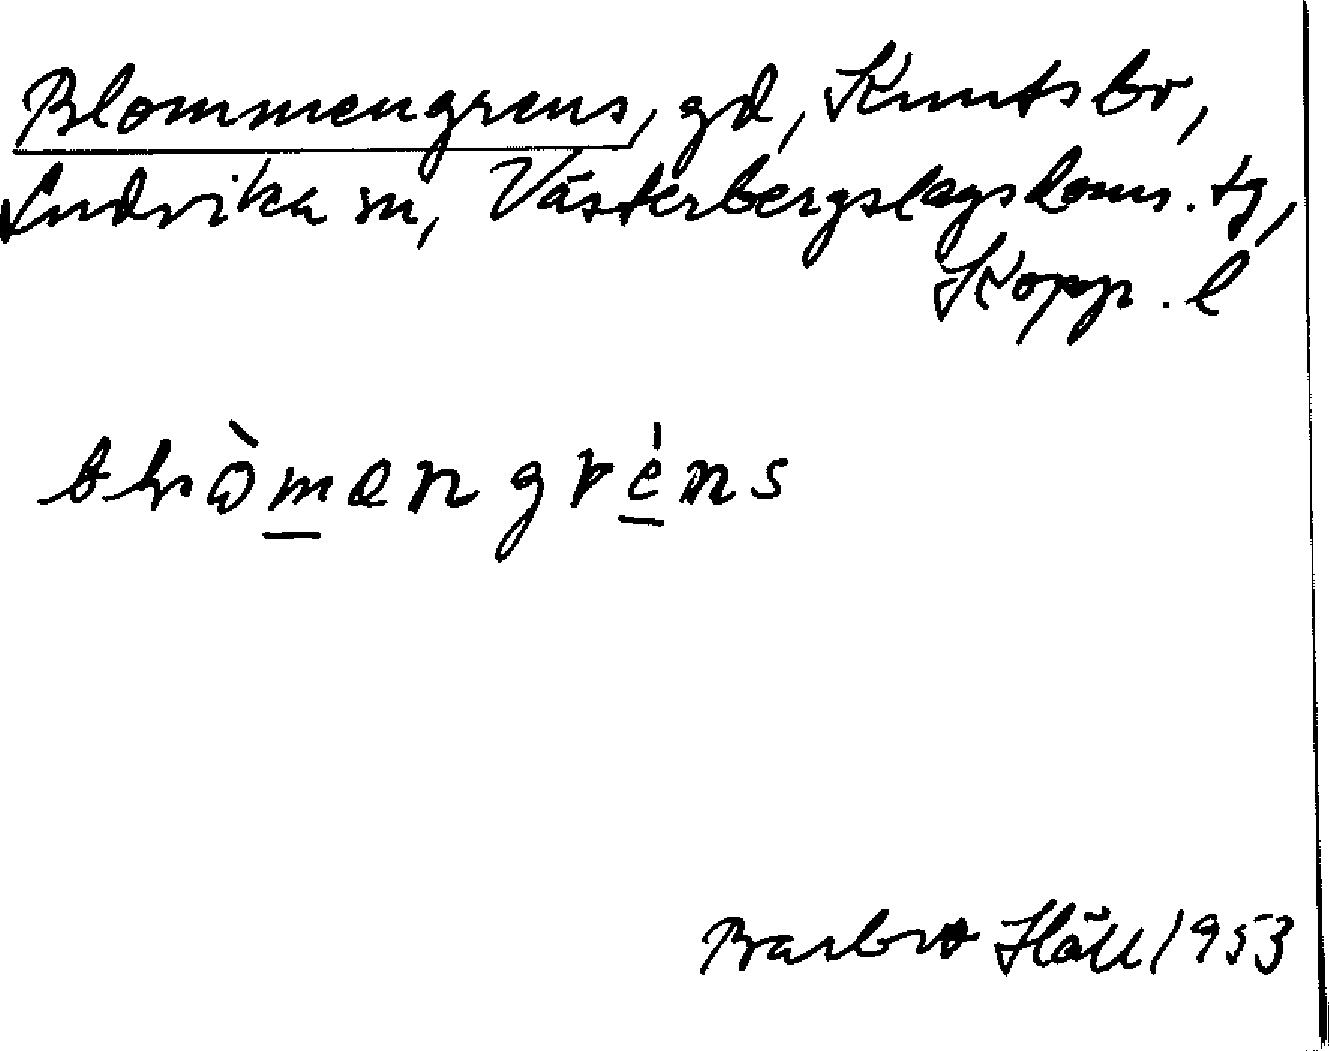 Blommengrens, gd, Knutsbo,
Ludvika sn, Västerbergslags doms. tg,
Kopp. l
Barbro Häll 1953